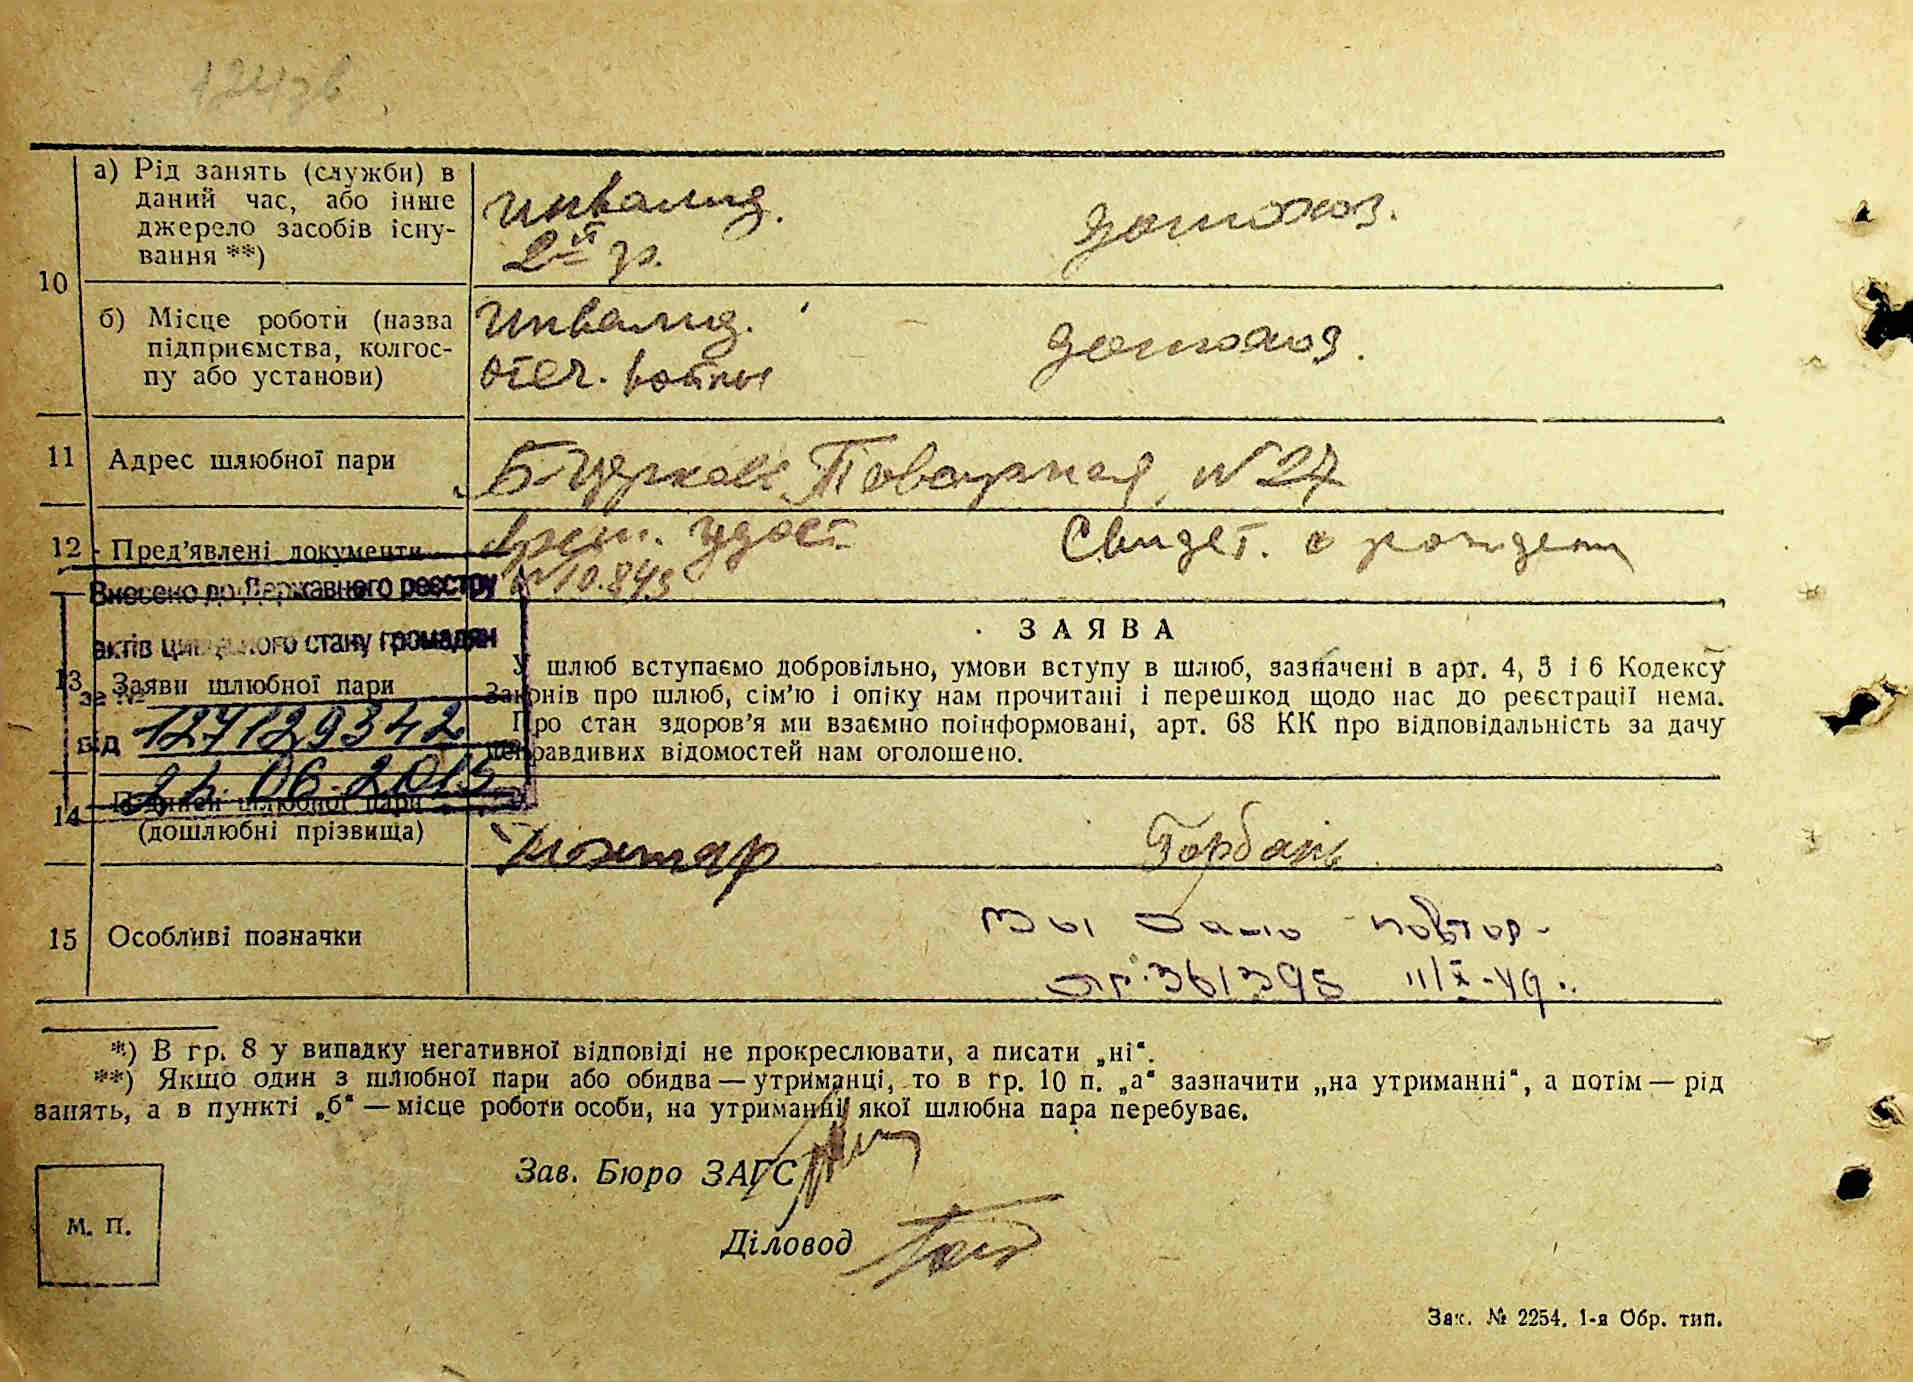 а) Рід занять (служби) в
даний час, або інше
джерело засобів існу-
вання **)
инвалид.
2й гр.
домохоз.
10
б) Місце роботи (назва
підприємства, колгос-
пу або установи)
Инвалид.
отеч. войны
домохоз.
11 Адрес шлюбної пари
Б-Церковь Товарная, N 27
12 Пред'явлені документи
врем. удост.
N 10.843
Свидет. о рожден
Внесено до Державного реєстру
актів цивільного стану громадян
за №
127129342
від
06.2015
13 Заяви шлюбної пари
ЗАЯВА
У шлюб вступаємо добровільно, умови вступу в шлюб, зазначені в арт. 4, 5 і 6 Кодексу
Законів про шлюб, сім'ю і опіку нам прочитані і перешкод щодо нас до реєстрації нема.
Про стан здоров'я ми взаємно поінформовані, арт. 68 КК про відповідальність за дачу
неправдивих відомостей нам оголошено.
14 Підписи шлюбної пари
(дошлюбні прізвища)
Горбань
15 Особливі позначки
повтор.
361398 11/X-49.
*) В гр. 8 у випадку негативної відповіді не прокреслювати, а писати „ні“.
**) Якщо один з шлюбної пари або обидва — утриманці, то в гр. 10 п. „а“ зазначити „на утриманні“, а потім — рід
занять, а в пункті „б“ — місце роботи особи, на утриманні якої шлюбна пара перебуває.
Зав. Бюро ЗАГС
М. П.
Діловод
Зак. № 2254. 1-я Обр. тип.